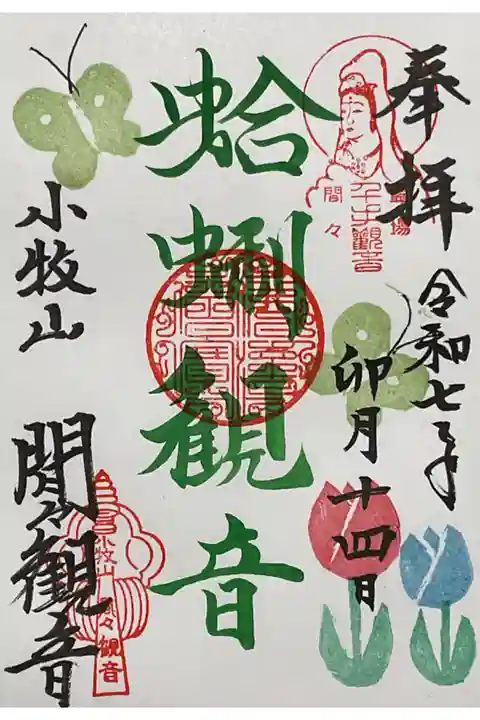 奉拝
令和七年
卯月十四日
千手觀音
間々
蛤蜊観音
小牧山
間々観音
小牧山
間々
観音